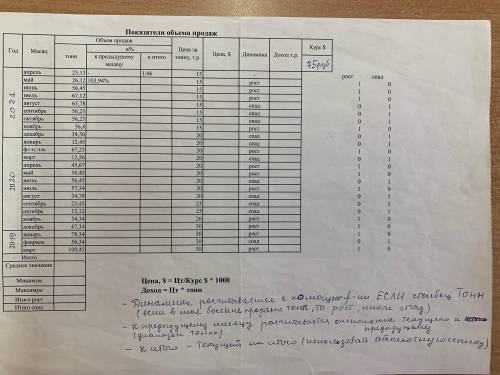 Показатели объема продаж
Год Месяц Объем продаж Цена за тонну, т.р Цена, $ Динамика Доход т.р. Курс $
тонн в% 75руб
к предыдущему месяцу к итого
рост спад
2021
апрель 25,13 - 1/46 15 -
май 26,12 103,94% 15 рост 1 0
июнь 56,45 15 рост 1 0
июль 67,12 15 рост 1 0
август 65,78 15 спад 0 1
сентябрь 56,23 15 спад 0 1
октябрь 56,23 15 спад 0 1
ноябрь 56,8 15 рост 1 0
декабрь 34,56 20 спад 0 1
2020
январь 12,45 20 спад 0 1
67,23 20 рост 1 0
март 12,56 20 спад 0 1
апрель 45,67 20 рост 1 0
май 56,45 20 рост 1 0
июнь 56,45 20 спад 0 1
июль 57,34 20 рост 1 0
август 34,78 20 спад 0 1
сентябрь 23,45 25 спад 0 1
октябрь 12,12 25 спад 0 1
ноябрь 34,34 26 рост 1 0
декабрь 67,34 30 рост 1 0
2019
январь 78,34 30 рост 1 0
февраль 56,34 30 спад 0 1
март 100,45 30 рост 1 0
Итого
Среднее значение
Минимум
Максимум
Итого рост
Итого спад
Цена, $ = Цт/Курс $ * 1000
Доход = Цт * тонн
- Динамика расчитывается с помощью ф-ии ЕСЛИ столбец ТОНН
(если в мае больше продано тонн, то рост, иначе спад)
- К предыдущему месяцу расчитывается отношение текущего к предыдущему
(диапазон тонны)
- К итого - текущий на итого (использовать абсолютную ссылку)